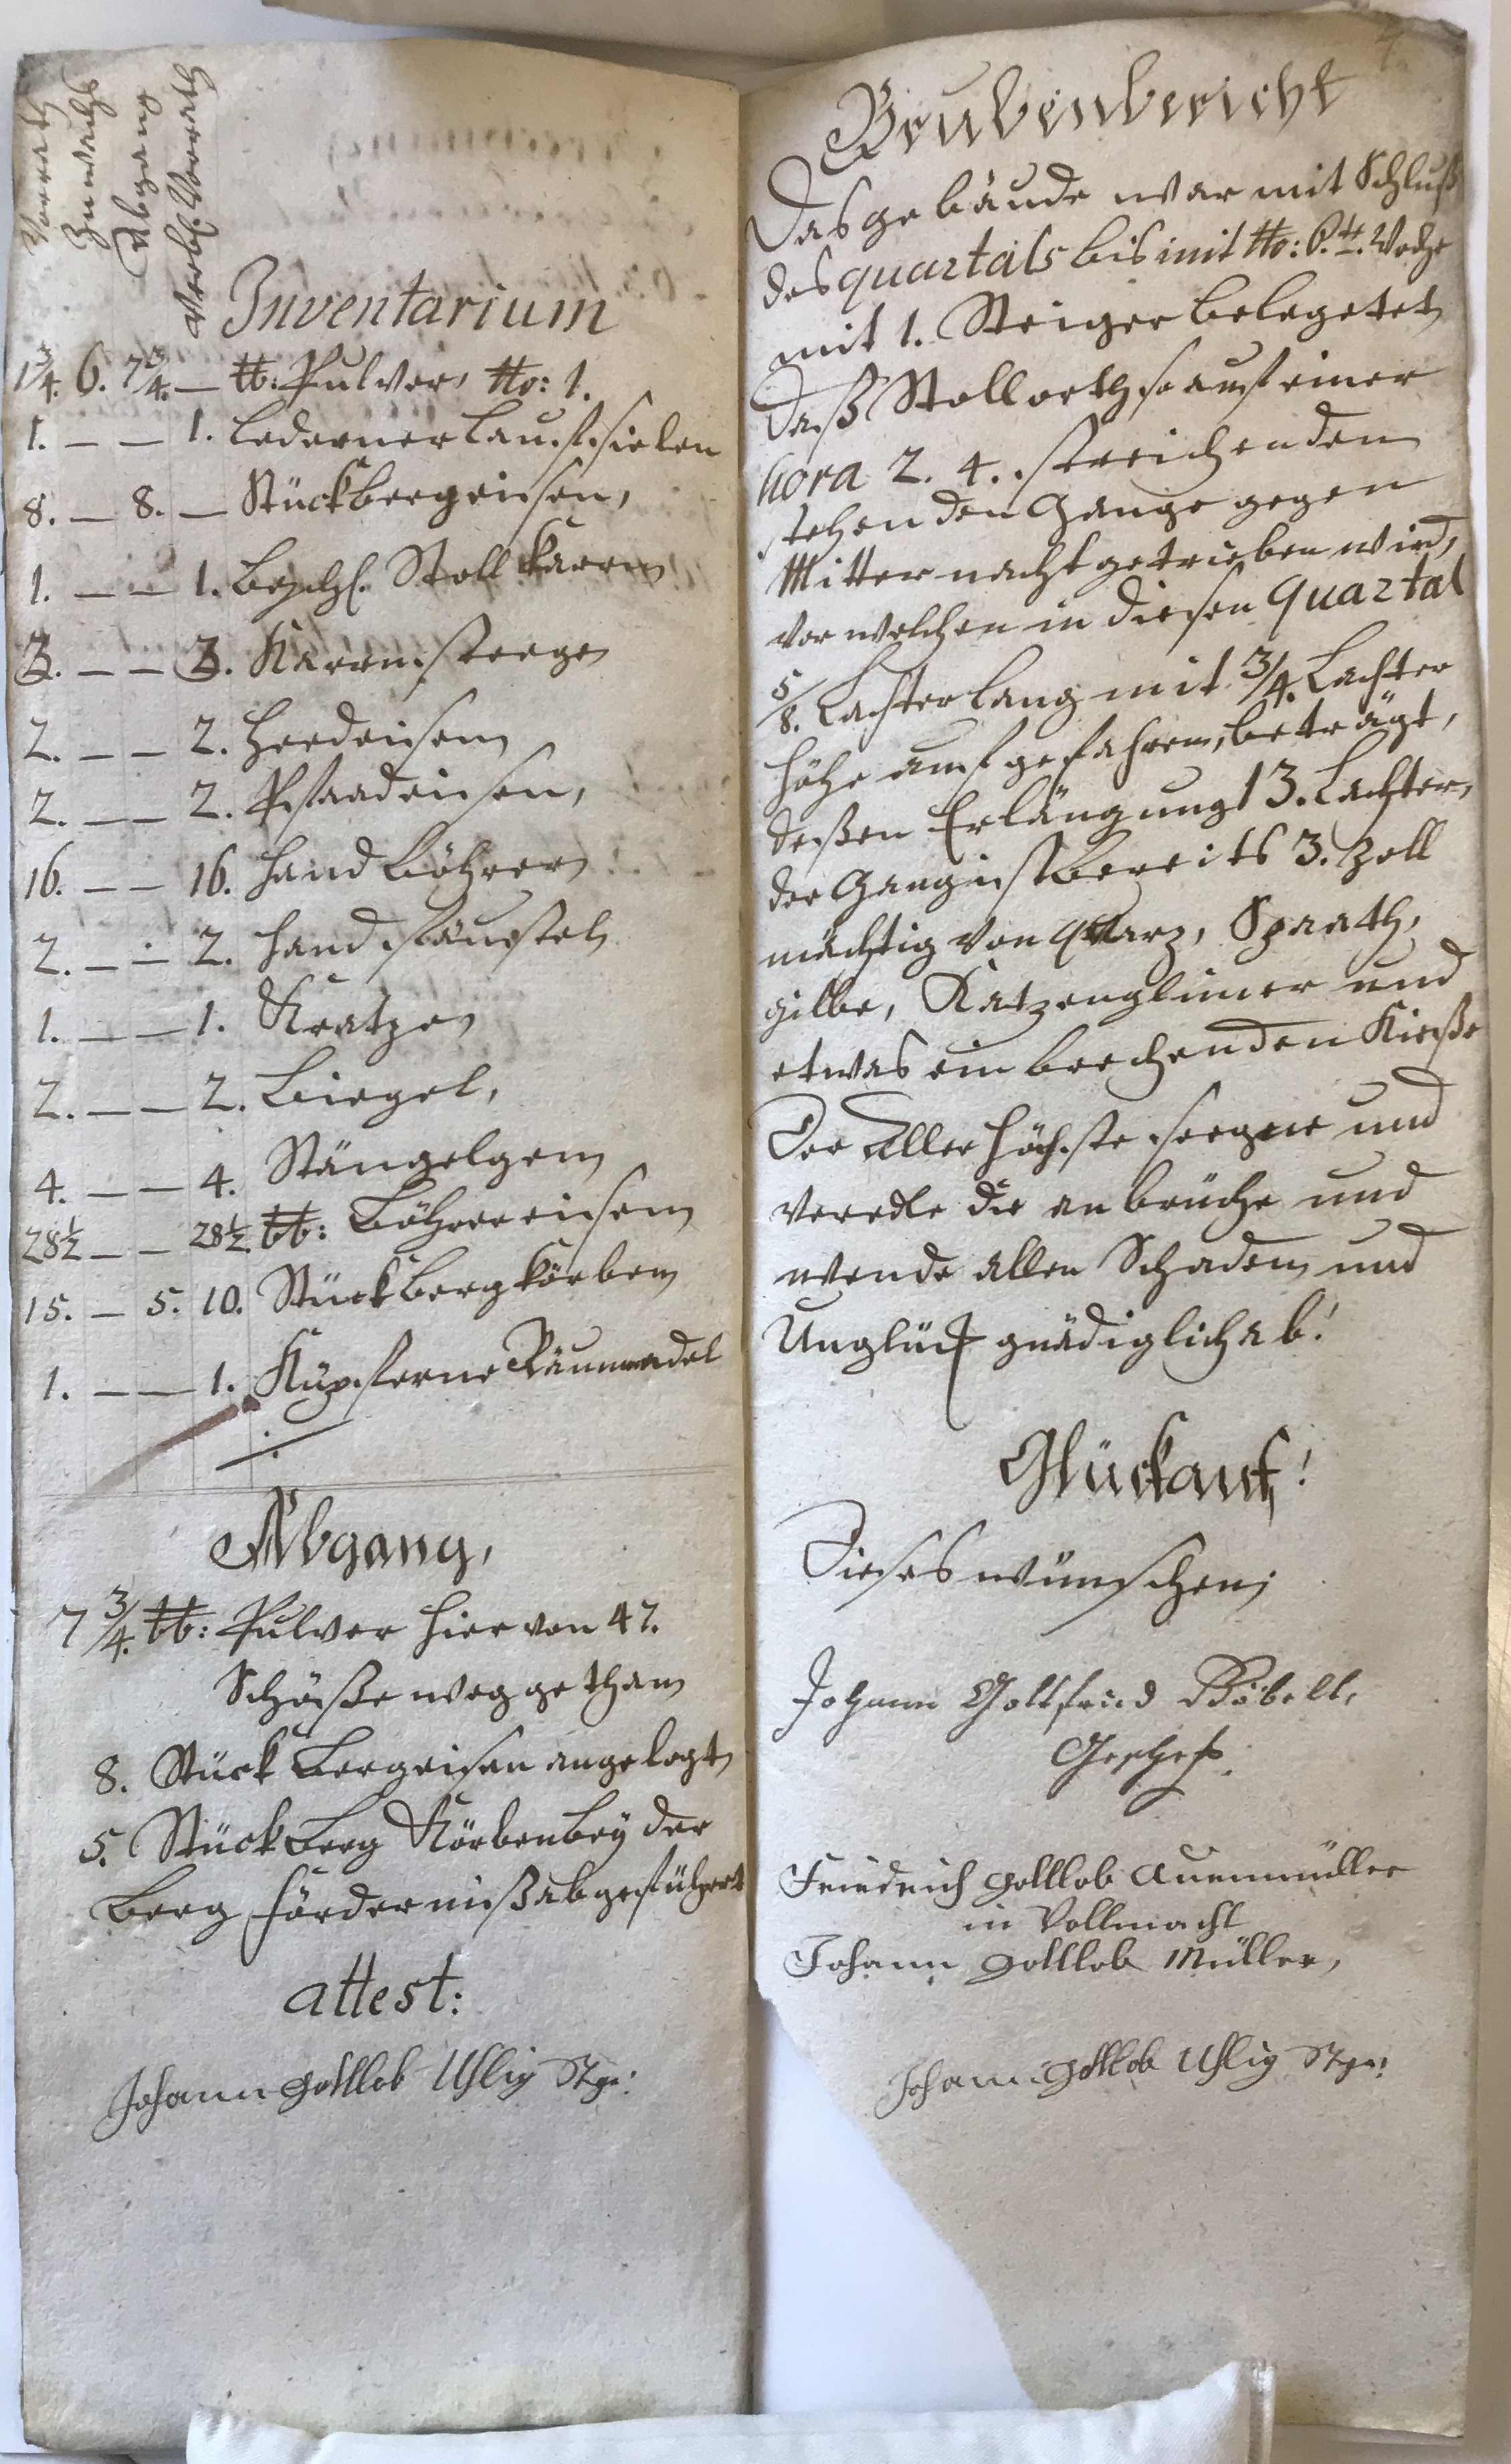 Vorrath
Zuwachß
Abgang
Verbl. Vorrath
Inventarium
1¾. 6. 7¾. — ℔: Pulver, No: 1.
1. — — 1. Lederner Lauffsielen
8. — 8. — Stück Bergeisen,
1. — — 1. Beschl. Stoll Karrn
3. — — 3. Karrnsteege
2. — — 2. Heerdeisen
2. — — 2. Pfaadeisen,
16. — — 16. Hand Böhrer
2. — — 2. Hand fäustel
1. — — 1. Kratze
2. — — 2. Biegel,
4. — — 4. Stängelgen
28½ — — 28½. ℔: Böhrer eisen
15. — 5. 10. Stück Berg körben
1. — — 1. Küpferne Räumnadel
Abgang,
7¾. ℔: Pulver hier von 47.
Schösse weg gethan
8. Stück Bergeisen angelegt
5. Stück Berg Körben bey der
Berg förderniß abgeführt
attest:
Johann Gottlob Uhlig Stgr:
4
Grubenbericht
Das gebäude war mit Schluß
des quartals bis mit No: 6. 4. Woche
mit 1. Steiger belegetet
Daß Stollorth so auf einer
hora 2. 4. streichenden
stehenden Gange gegen
Mitternacht getrieben wird,
vor welchen in diesen quartal
5/8. Lachter lang mit ¾. Lachter
höhe auf gefahren, beträgt,
deßen Erlängung 13. Lachter,
der Gang ist bereits 3. Zoll
mächtig von quarz, Spaath,
gilbe, Katzenglimer und
etwas ein brechenden Kieße
Der Aller höchste seegne und
veredle die anbrüche und
wende allen Schaden und
Unglück gnädiglich ab!
Glückauf!
Dieses wünschen
Johann Gottfried
Friedrich Gottlob Auenmüller
in Vollmacht
Johann Gottlob Müller,
Johann Gottlob Uhlig Stgr: